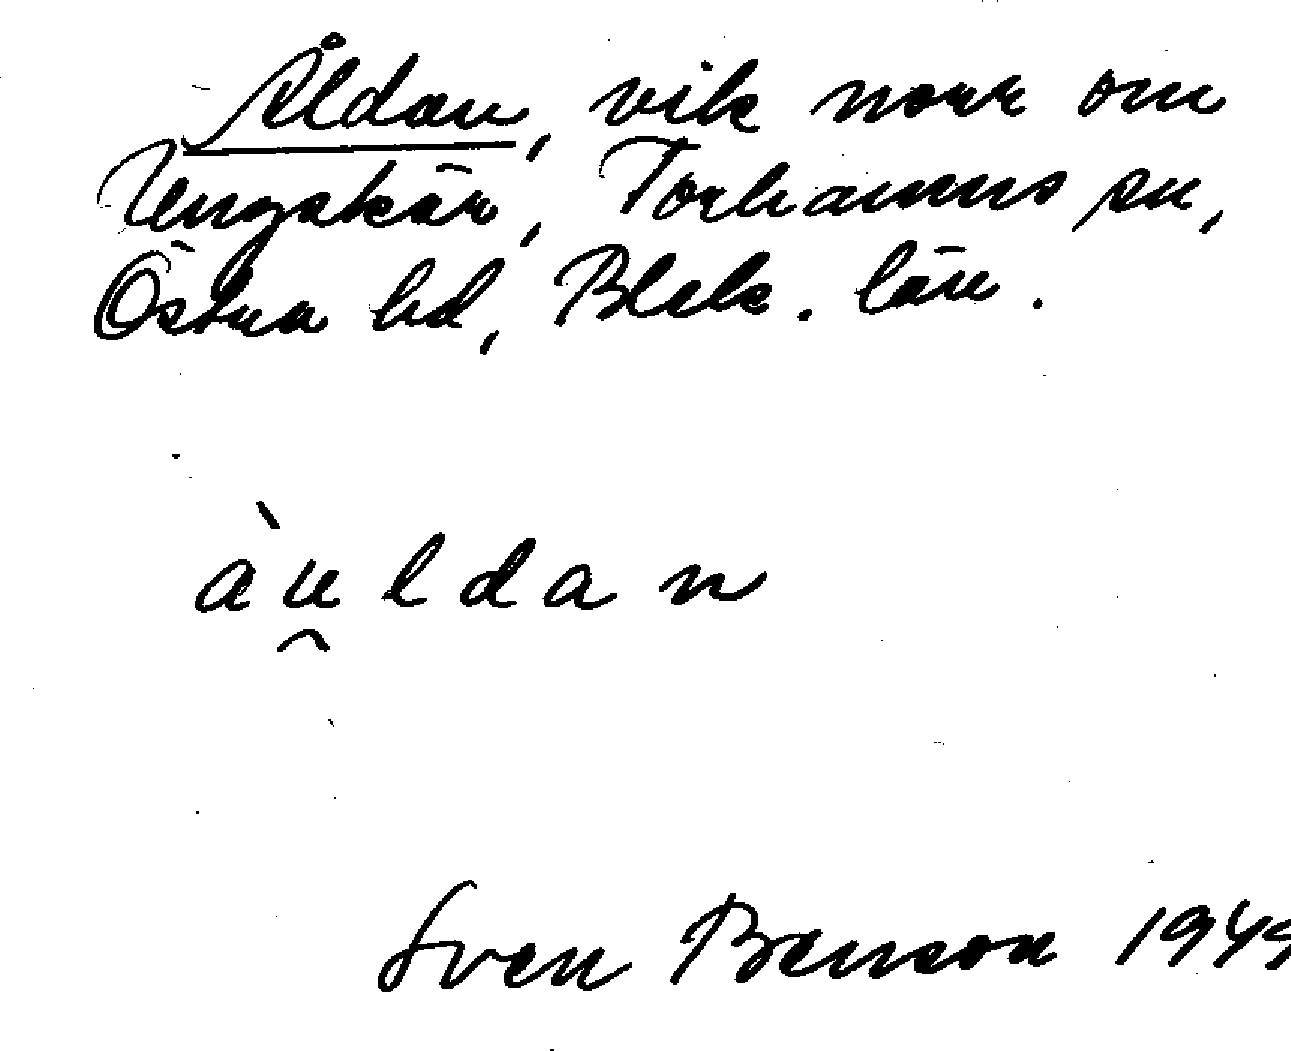 Åldan, vik norr om
Ungskär, Torhamns sn,
Östra hd, Blek. län.
àu̯ldan
Sven Benson 1945